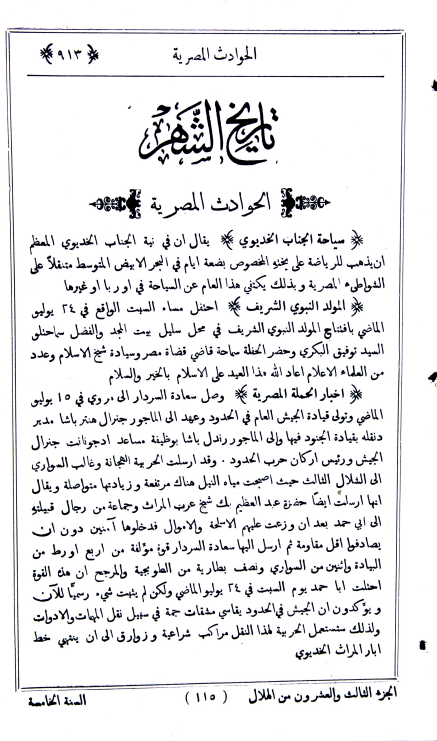 الحوادث المصرية ﴿ ٩١٣ ﴾
تاريخ الشهر
الحوادث المصرية
﴿ سياحة الجناب الخديوي ﴾ يقال ان في نية الجناب الخديوي المعظم
ان يذهب للرياضة على يخته المخصوص بضعة ايام في البحر الابيض المتوسط متنقلاً على
الشواطىء المصرية وبذلك يكتفي هذا العام عن السياحة في اوربا او غيرها
﴿ المولد النبوي الشريف ﴾ احتفل مساء السبت الواقع في ٢٤ يوليو
الماضي بافتتاح المولد النبوي الشريف في محل سليل بيت المجد والفضل سماحتلو
السيد توفيق البكري وحضر الحفلة سماحة قاضي قضاة مصر وسيادة شيخ الاسلام وعدد
من العلماء الاعلام اعاد الله هذا العيد على الاسلام بالخير والسلام
﴿ اخبار الحملة المصرية ﴾ وصل سعادة السردار الى مروي في ١٥ يوليو
الماضي وتولى قيادة الجيش العام في الحدود وعهد الى الماجور جنرال هنتر باشا مدير
دنقله بقيادة الجنود فيها والى الماجور رندل باشا بوظيفة مساعد ادجوتانت جنرال
الجيش ورئيس اركان حرب الحدود . وقد ارسلت الحربية الهجانة وغالب السواري
الى الشلال الثالث حيث اصبحت مياه النيل هناك مرتفعة وزيادتها متواصلة ويقال
انها ارسلت ايضًا حضرة عبد العظيم بك شيخ عرب المراث وجماعة من رجال قبيلته
الى ابي حمد بعد ان وزعت عليهم الاسلحة والاموال فدخلوها آمنين دون ان
يصادفوا اقل مقاومة ثم ارسل اليها سعادة السردار قوة مؤلفة من اربع اورط من
البيادة واثنين من السواري ونصف بطارية من الطوبجية والمرجح ان هذه القوة
احتلت ابا حمد يوم السبت في ٢٤ يوليو الماضي ولكن لم يثبت شيء رسميًا للآن
ويؤكدون ان الجيش في الحدود يقاسي مشقات جمة في سبيل نقل المهمات والادوات
ولذلك ستستعمل الحربية لهذا النقل مراكب شراعية وزوارق الى ان ينتهي خط
ابار المراث الخديوي
الجزء الثالث والعشرون من الهلال ( ١١٥ ) السنة الخامسة